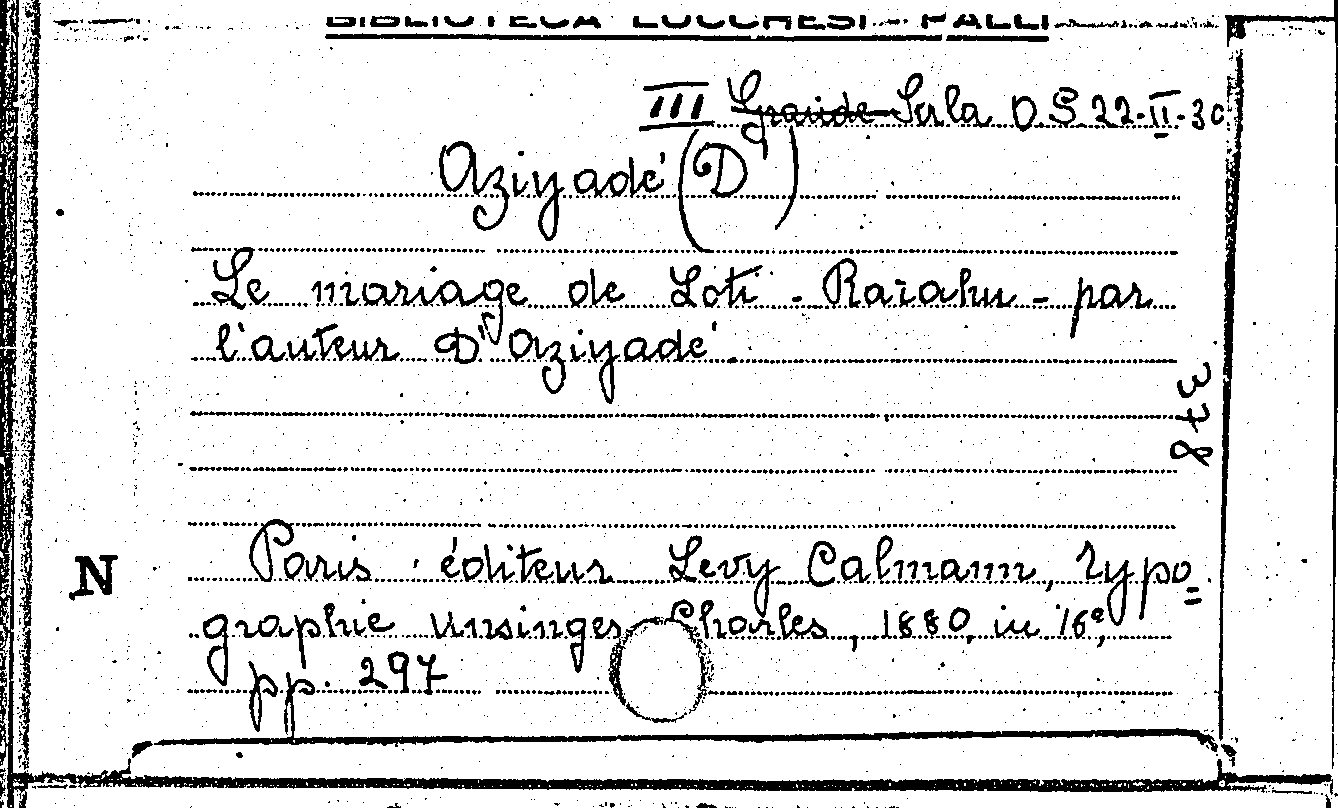 BIBLIOTECA LUCCHESI - PALLI
III Grande Sala D.S. 22-II-30
Aziyadé (D')
Le mariage de Loti - Rarahu - par
l'auteur D'Aziyadé.
378
Paris · éditeur Levy Calmann, Typo=
N
graphie Unsinges Charles, 1880, in 16°,
pp. 297